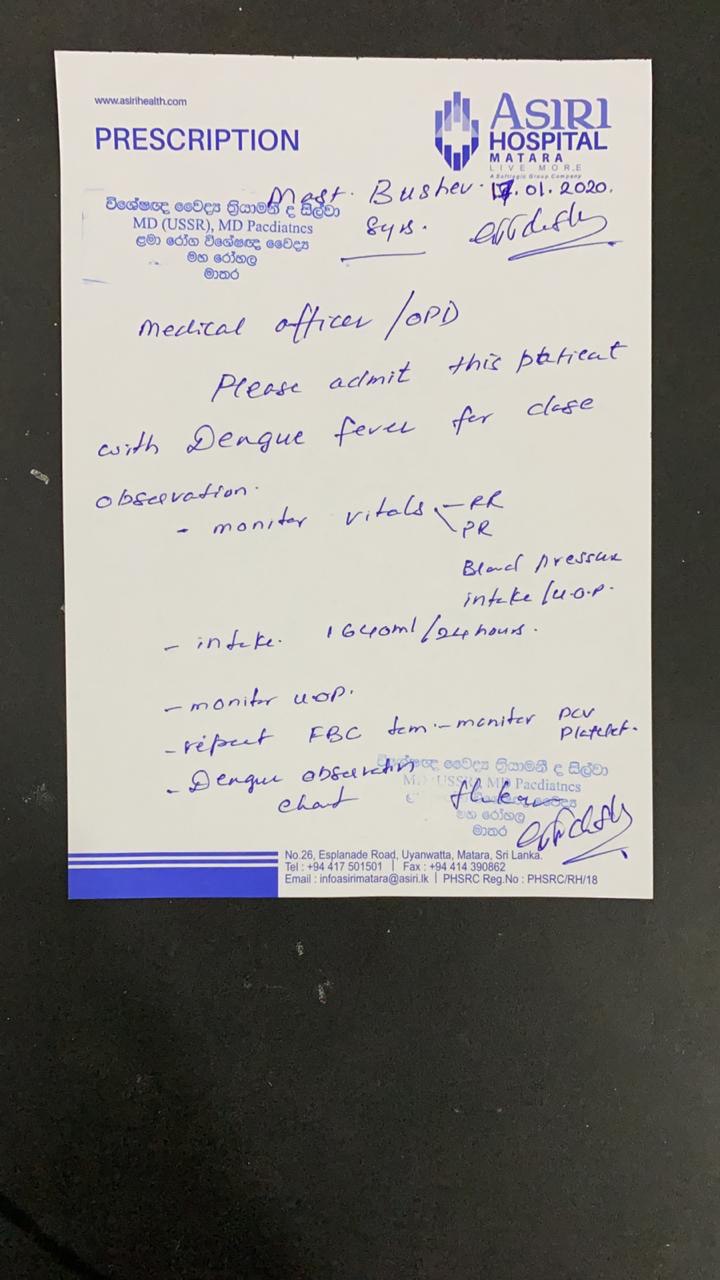 www.asirihealth.com
PRESCRIPTION
ASIRI
HOSPITAL
MATARA
LIVE MORE
A Softlogic Group Company
Mast. Bushev. 17.01.2020.
8yrs.
විශේෂඥ වෛද්‍ය ත්‍රියාමනී ද සිල්වා
MD (USSR), MD Paediatrics
ළමා රෝග විශේෂඥ වෛද්‍ය
මහ රෝහල
මාතර
Medical officer /OPD
Please admit this patient
with Dengue fever for close
observation.
- monitor vitals - RR
PR
Blood pressure
intake/U.O.P.
- intake. 1640ml/24hours.
- monitor UOP.
- repeat FBC tem - monitor PCV
Platelet.
- Dengue observation
chart
විශේෂඥ වෛද්‍ය ත්‍රියාමනී ද සිල්වා
MD (USSR), MD Paediatrics
විශේෂඥ වෛද්‍ය
මහ රෝහල
මාතර
No.26, Esplanade Road, Uyanwatta, Matara, Sri Lanka.
Tel : +94 417 501501 | Fax : +94 414 390862
Email : infoasirimatara@asiri.lk | PHSRC Reg.No : PHSRC/RH/18